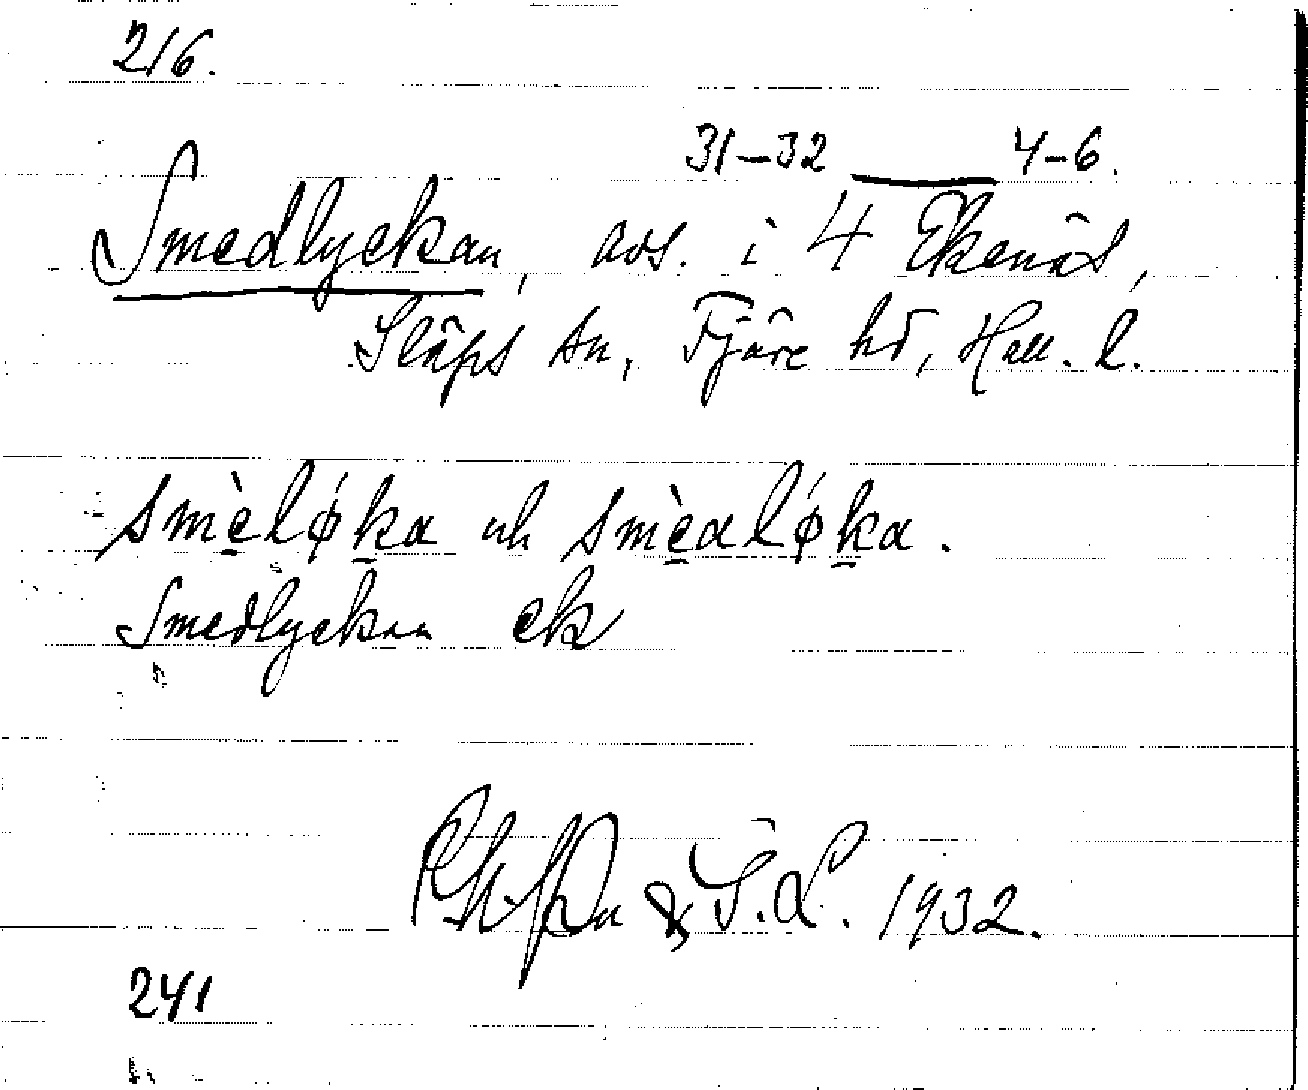 216.
31–32 ____ 4–6.
Smedlyckan, avs. i 4 Ekenäs,
Släps sn, Fjäre hd, Hall. l.
smèløka och smèdaløka.
Smedlyckan ek
& 1932.
241